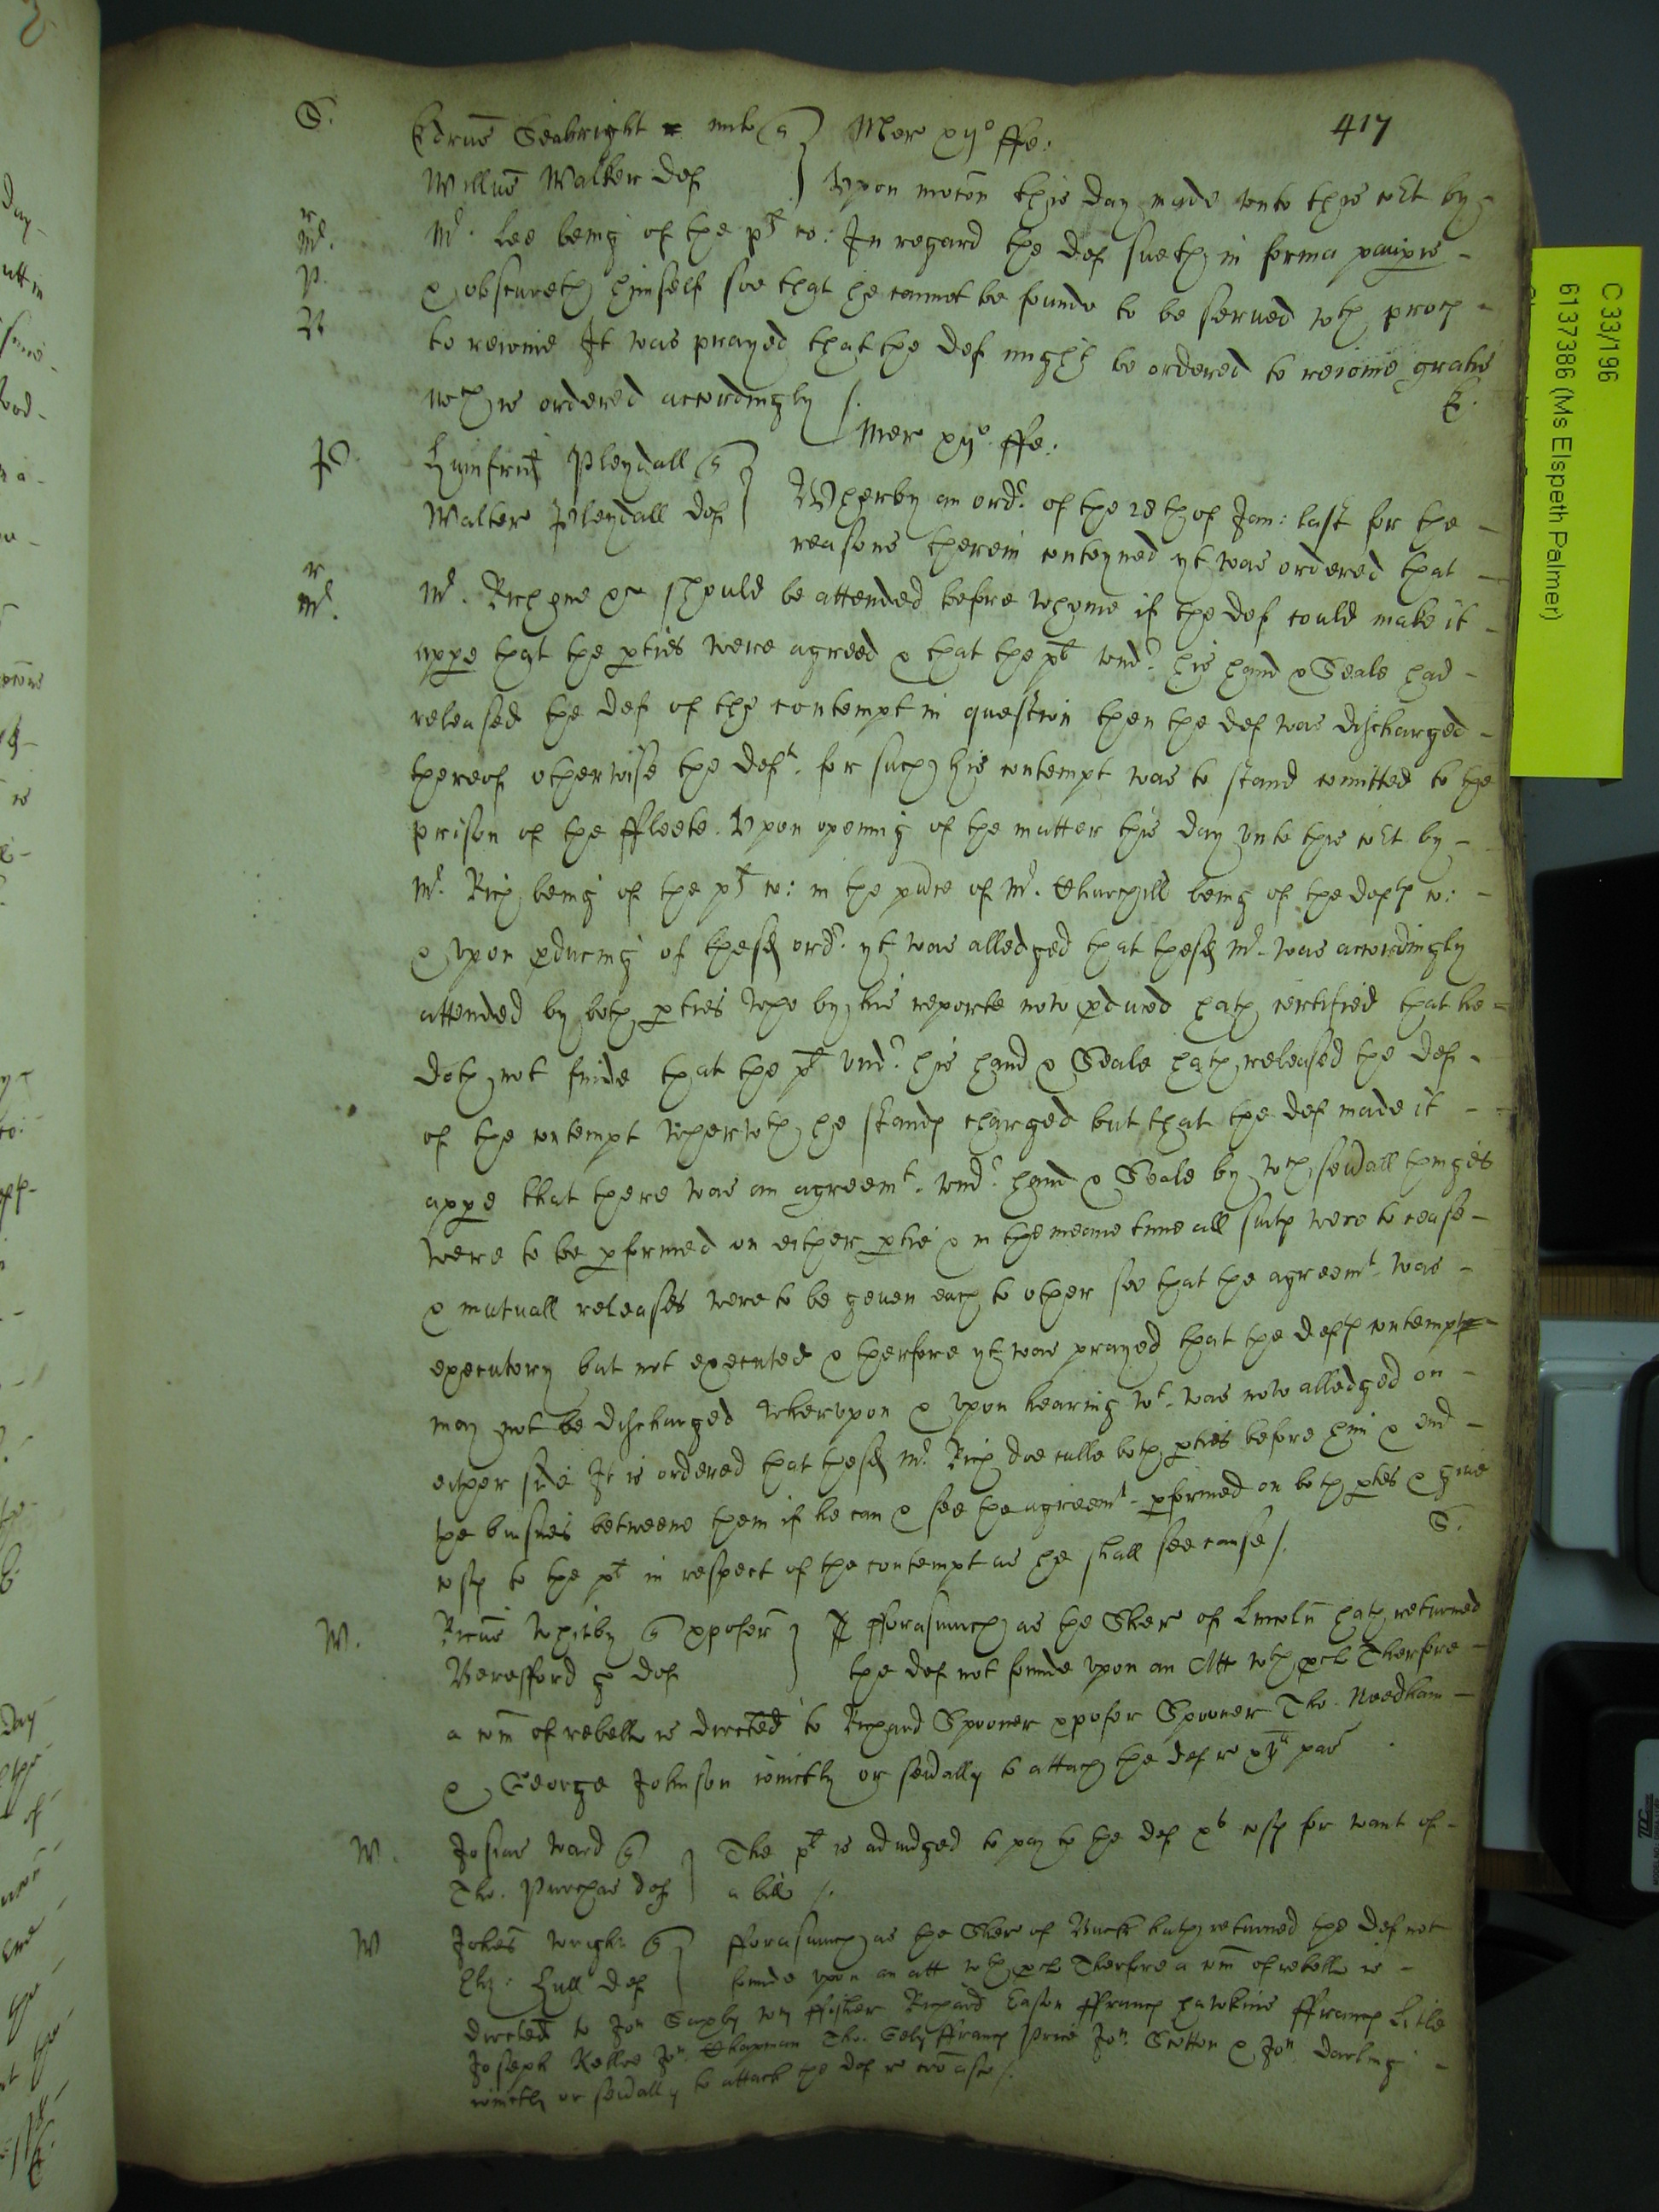 417
S. Edrus Seabright milt q Mer xijo ffe:
Willus Walker def Upon mocon this day made unto this cort by
Mr. Lee being of the plt co: In regard the def sueth in forma paupis
& obscureth himself soe that he cannot be founde to be served wth proces
to reioine It was prayed that the def might be ordered to reioine gratis
wch is ordered accordingly /. E.
Mer xijo ffe:
P. Humfrid Pleydall q
Walter Pleydall def Wherby an ordr. of the 28th of Jan: last for the
reasons therein conteyned yt was ordered that
Mr. Rich one &c should be attended before whome if the def could make it
appe that the pties were agreed & that the plt undr his hand & Seale had
released the def of the contempt in question then the def was discharged
thereof otherwise the deft. for such his contempt was to stand comitted to the
prison of the ffleete. Upon opening of the matter this day unto this cort by
Mr. Rich being of the plt co: in the pnce of Mr. Churchill being of the deftes co:
& upon pducing of the sd ordr. yt was alledged that the sd Mr. was accordingly
attended by both pties who by his reporte now pduced hath certified that he
doth not finde that the plt undr. his hand & Seale hath released the def
of the contempt wherwth he standes charged but that the def made it
appe that there was an agreemt. undr. hand & Seale by wch sevall thinges
were to be pformed on either ptie & in the meane time all suites were to cease
& mutuall releases were to be geven each to other soe that the agreemt. was
executory but not executed & therfore yt was prayed that the deftes contempte
may not be discharged wherupon & upon hearing wt. was now alledged on
either side It is ordered that the sd Mr. Rich doe calle both pties before him & end
the busines betweene them if he can & see the agreemt. pformed on both ptes & give
costes to the plt in respect of the contempt as he shall see cause /. S.
W. Ricus Whitby q xpofer fforasmuch as the Sher of Lincoln hath returned
Beresford g def the def not founde upon an Att wth pcl Therfore
a com of rebell is directed to Richard Spooner xpofer Spooner Tho. Needham
& George Johnson iointly or sevally to attach the def re pas
W. Josias Ward q The plt is adiudged to pay to the def xs costes for want of
Tho. Purchas def a bill /.
W Johes Wright q fforasmuch as the Sher of Buck hath returned the def not
Eliz: Hull def founde upon an att wth pcl Therfore a com of rebell is
directed to Jon Saxby Wm ffisher Richard Eason ffrances Hawkins ffrances Litle
Joseph Kellee Jon. Chapman Tho. Sely ffrances Price Jon. Stetton & Jon. Darling
iointly or sevally to attach the def re cro asce /.
C 33/196
6137386 (Ms Elspeth Palmer)